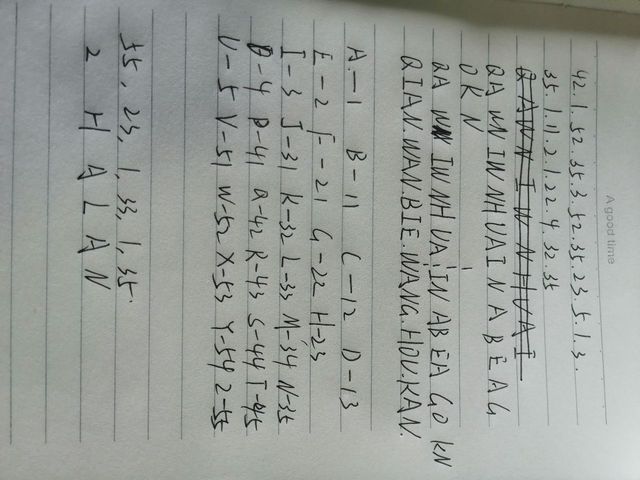 A good time
42.1.52.35.3.52.35.23.5.1.3.
35.1.11.2.1.22.4.32.35
QAWN I W NHUAI
QA WN IW NHUAI N A B E A G
O K N
QA WN IW NHUA IN A B E A G O KN
QIAN.WAN.BIE.WANG.HOU.KAN.
A-1 B-11 C-12 D-13
E-2 F-21 G-22 H-23
I-3 J-31 K-32 L-33 M-34 N-35
O-4 P-41 Q-42 R-43 S-44 T-45
U-5 V-51 W-52 X-53 Y-54 Z-55
55, 23, 1, 33, 1, 35.
Z H A L A N